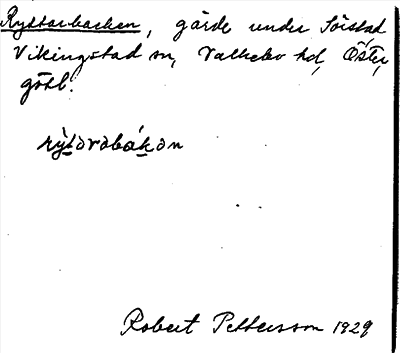 Ryttarbacken, gärde under Sörstad
Vikingstad sn, Valkebo hd, Öster,
götl.
rỳtəvəbákən
Robert Pettersson 1929